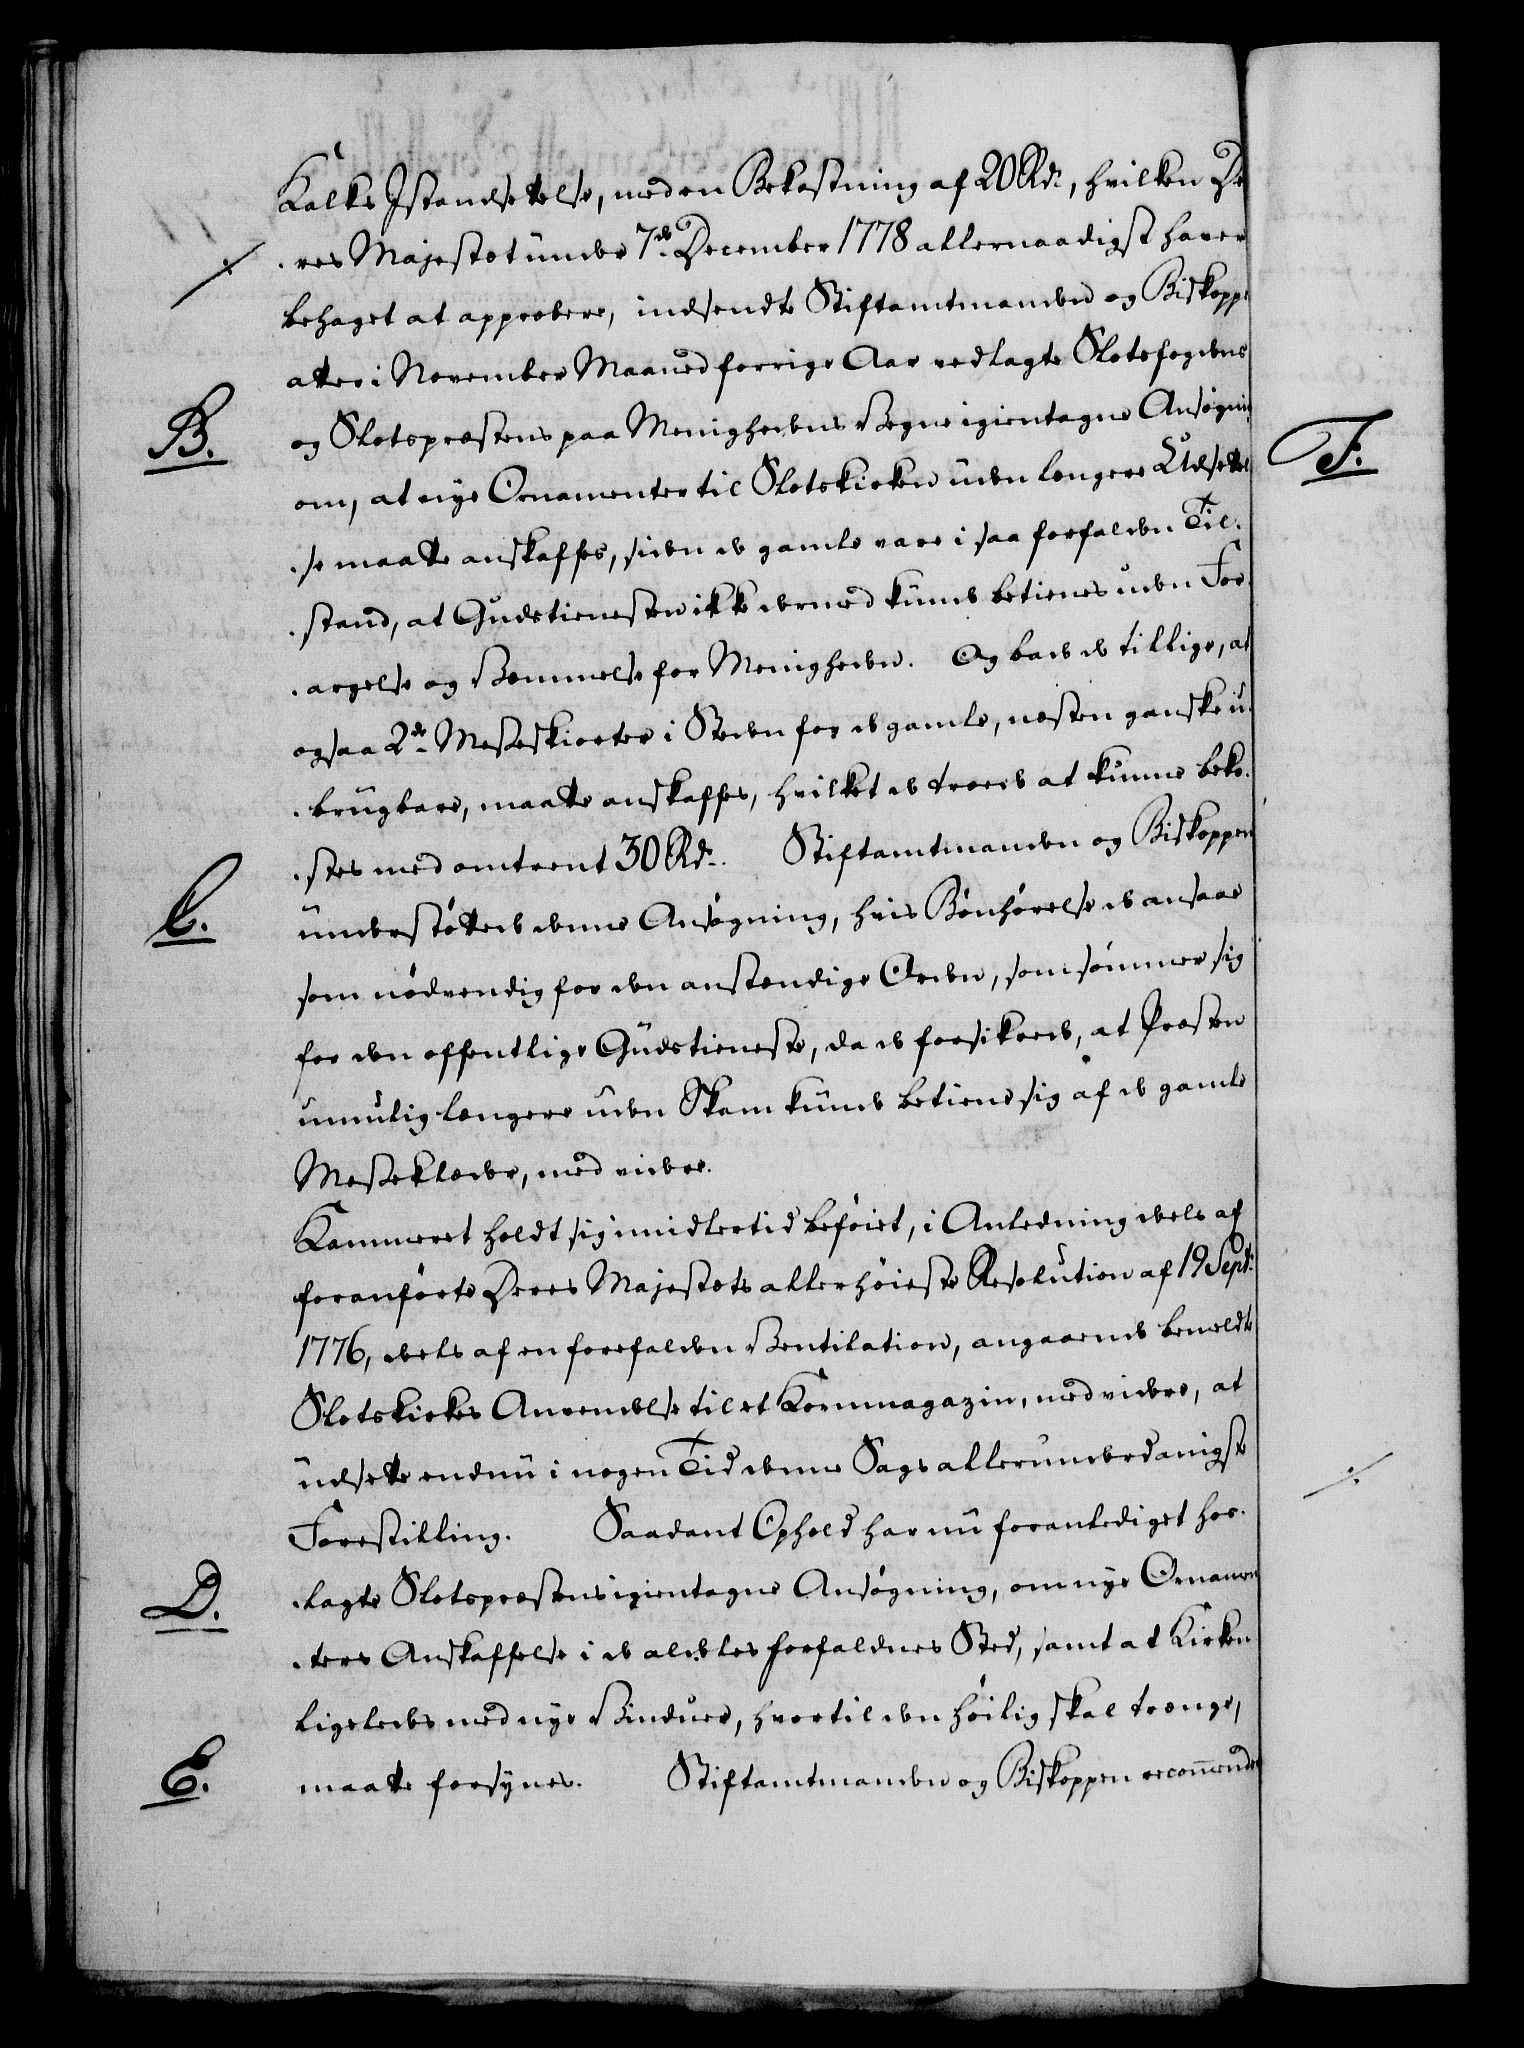 Kalks Istandsættelse, med en Bekostning af 20 Rd., hvilken De
res Majestæt under 7de December 1778 allernaadigst haver
behaget at approbere, indsendte Stiftamtmanden og Biskoppe
B.
atter i November Maaned forrige Aar vedlagte Slotsfogdens
og Slotspræstens paa Menighedens Vegne igientagne Ansøgni
F.
om, at nye Ornamenter til Slotskirken uden længere Udsættel
se maatte anskaffes, siden de gamle vare i saa forfalden Til
stand, at Gudstienesten ikke dermed kunde betienes uden For
argelse og Væmmelse for Menigheden. Og bade de tillige, at
ogsaa 2de Messeskiorter i Steden for de gamle, næsten ganske u
brugbare, maatte anskaffes, hvilket de troede at kunne beko
stes med omtrent 30 Rd. Stiftamtmanden og Biskoppen
C.
understøttede denne Ansøgning, hvis Bønhørelse de ansaae
som nødvendig for den anstændige Orden, som sømmer sig
for den offentlige Gudstieneste, da de forsikrede, at Præsten
umulig længere uden Skam kunde betiene sig af de gamle
Messeklæder, med videre.
Kammeret holdt sig imidlertid beføiet, i Anledning deels af
foranførte Deres Majestæts allerhøieste Resolution af 19 Sept:
1776, deels af en forefalden Ventilation, angaaende bemeldte
Slotskirkes Anvendelse til et Kornmagazin, med videre, at
udsætte endnu i nogen Tid denne Sags allerunderdanigste
Forestilling. Saadant Ophold har nu foranlediget hos
D.
lagte Slotspræstens igientagne Ansøgning, om nye Ornamen
ters Anskaffelse i de aldeles forfaldnes Sted, samt at Kirken
ligeledes med nye Vinduer, hvortil den høilig skal trænge,
E.
maatte forsynes. Stiftamtmanden og Biskoppen recommende